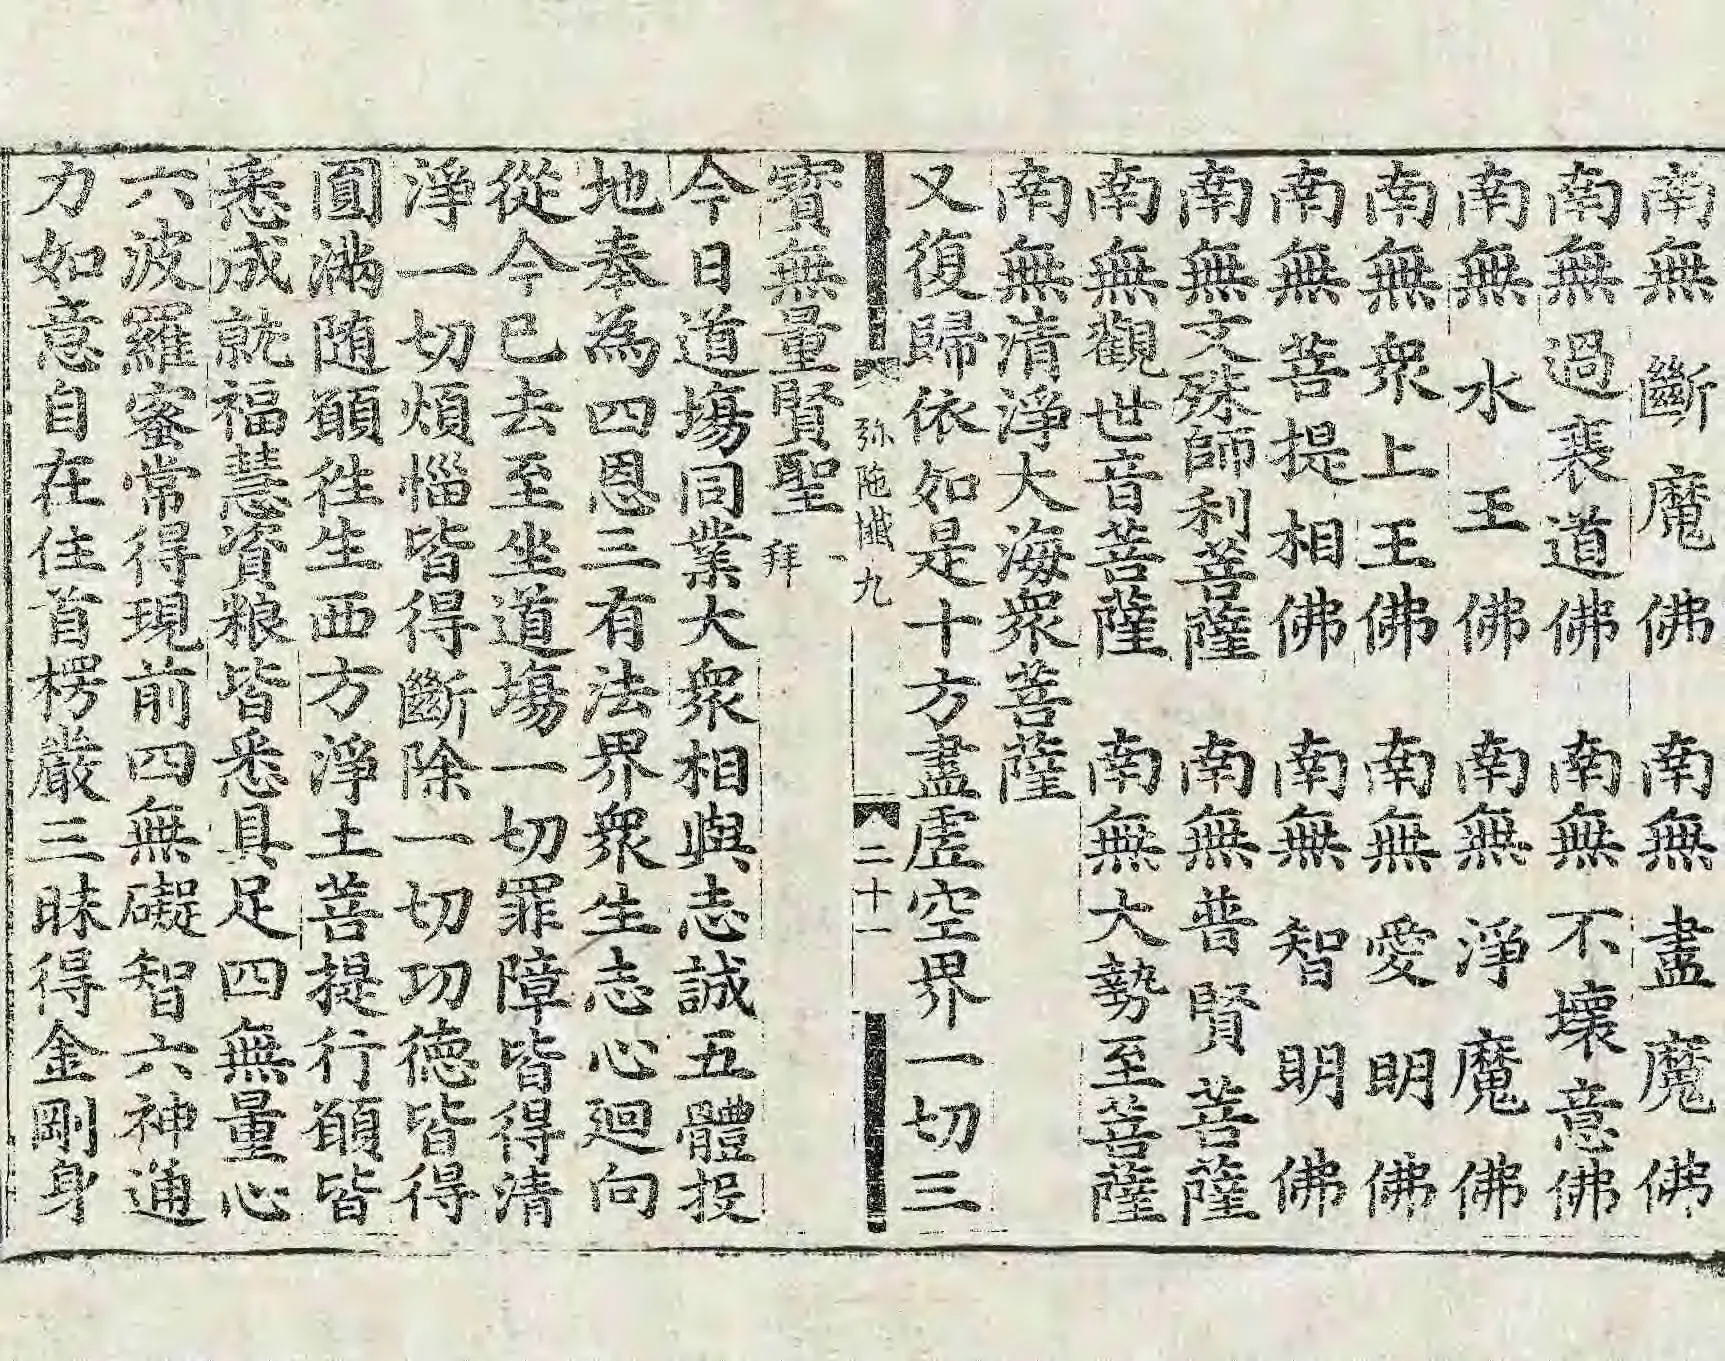 南無斷魔佛 南無盡魔佛
南無過裹道佛 南無不壞意佛
南無水王佛 南無淨魔佛
南無衆上王佛 南無愛明佛
南無菩提相佛 南無智明佛
南無文殊師利菩薩 南無普賢菩薩
南無觀世音菩薩 南無大勢至菩薩
南無清淨大海衆菩薩
又復歸依如是十方盡虛空界一切三
弥陁懺九 二十一
寶無量賢聖 一拜
今日道塲同業大衆相與志誠五體投
地奉為四恩三有法界衆生志心廻向
從今已去至坐道塲一切罪障皆得清
淨一切煩惱皆得斷除一切功德皆得
圓滿随願徃生西方淨土菩提行願皆
悉成就福慧資粮皆悉具足四無量心
六波羅蜜常得現前四無礙智六神通
力如意自在住首楞嚴三昧得金剛身